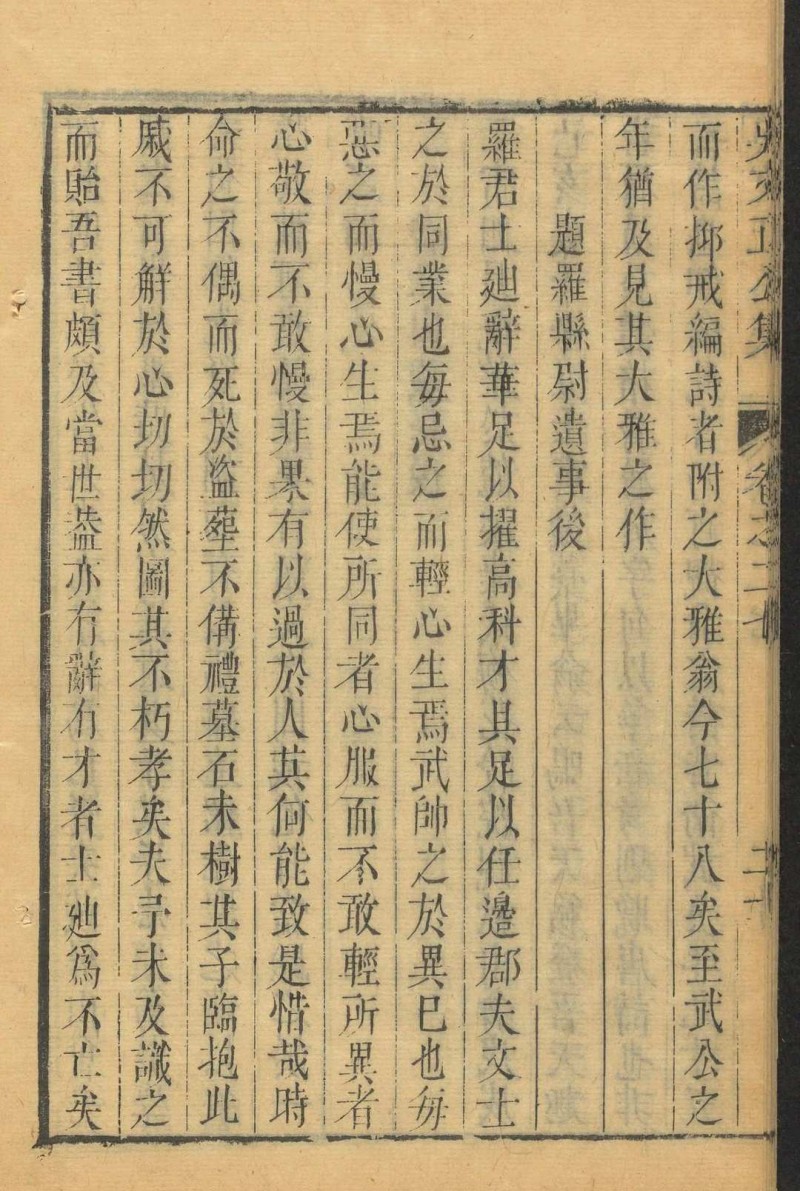 吳文正公集 卷之二十
而作抑戒編詩者附之大雅翁今七十八矣至武公之
年猶及見其大雅之作
題羅縣尉遺事後
羅君士廸辭華足以擢高科才具足以任邊郡夫文士
之於同業也每忌之而輕心生焉武帥之於異巳也每
惡之而慢心生焉能使所同者心服而不敢輕所異者
心敬而不敢慢非果有以過於人其何能致是惜哉時
命之不偶而死於盜塟不備禮墓石未樹其子臨抱此
戚不可觧於心切切然圖其不朽孝矣夫予未及識之
而貽吾書頗及當世葢亦有辭有才者士廸爲不亡矣